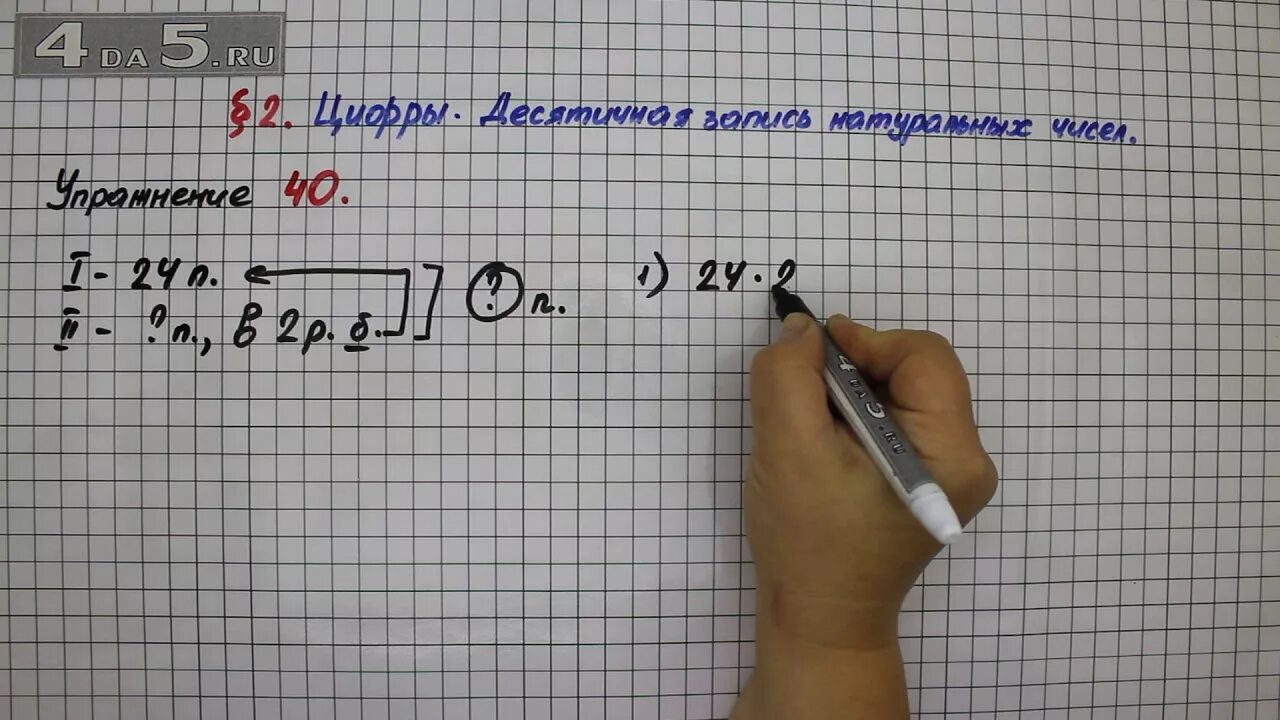 4DA5.RU
§2. Цифры. Десятичная запись натуральных чисел.
Упражнение 40.
I - 24 п.
II - ? п., в 2 р. б.
? п.
1) 24 · 2
4DA5.RU